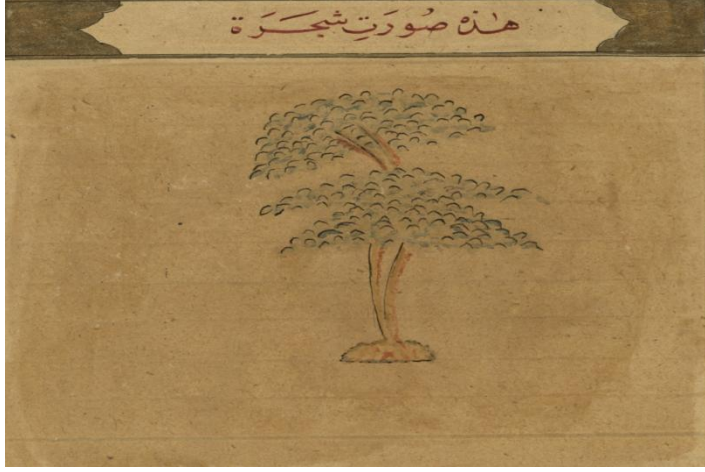 هٰذه صُورَتِ شجَرَة